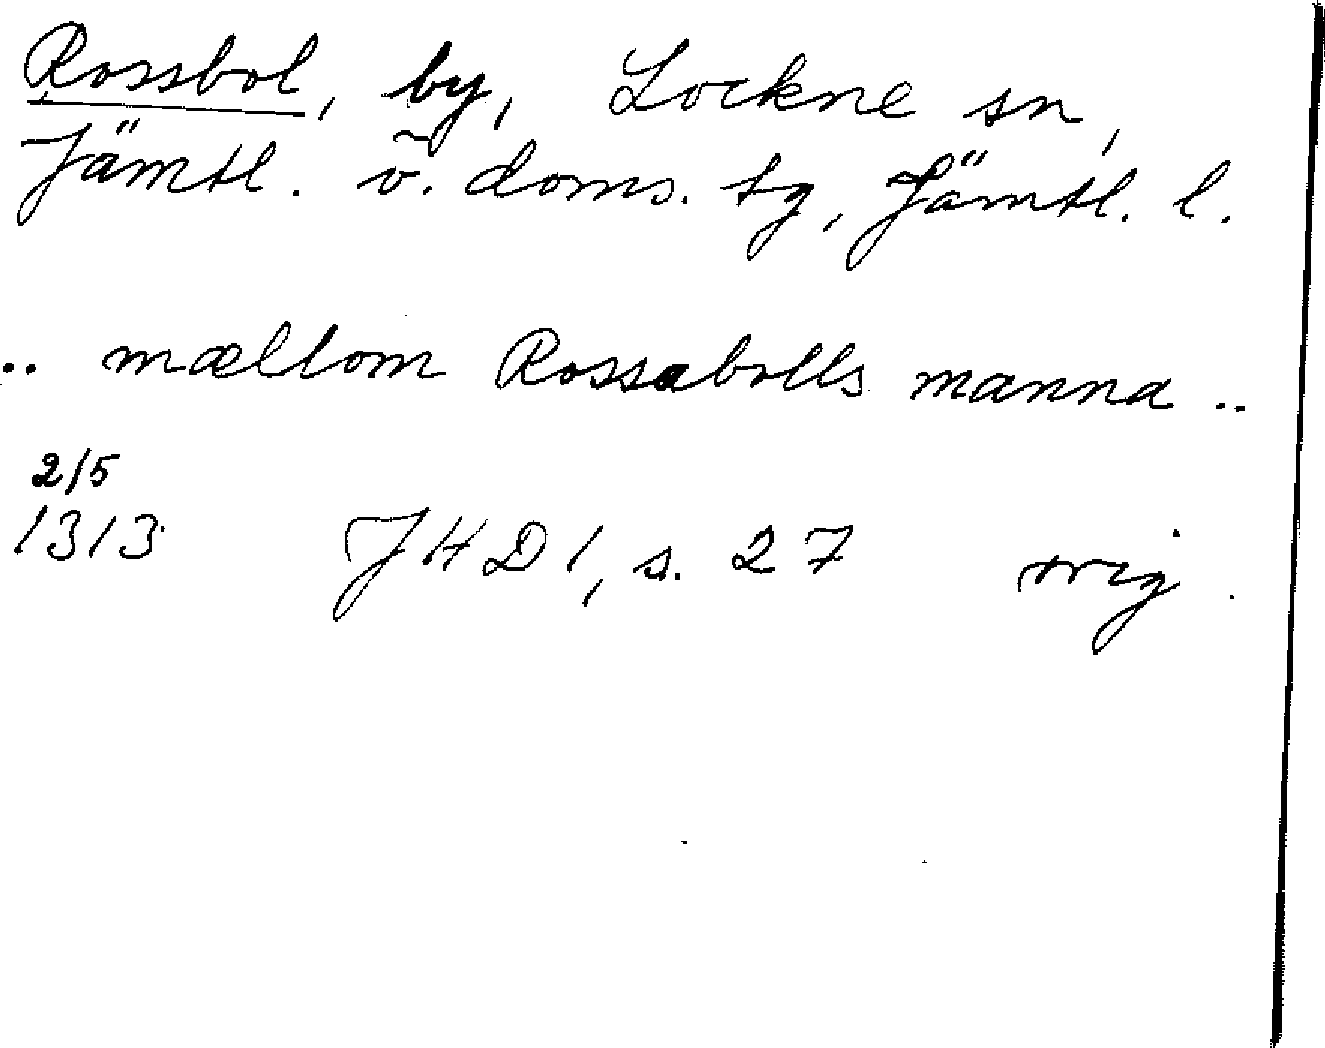 Rossbol, by, Lockne sn,
Jämtl. ö. doms. tg, Jämtl. l.
.. mællom Rossabolls manna ..
2/5
1313 JHD 1, s. 27 orig.